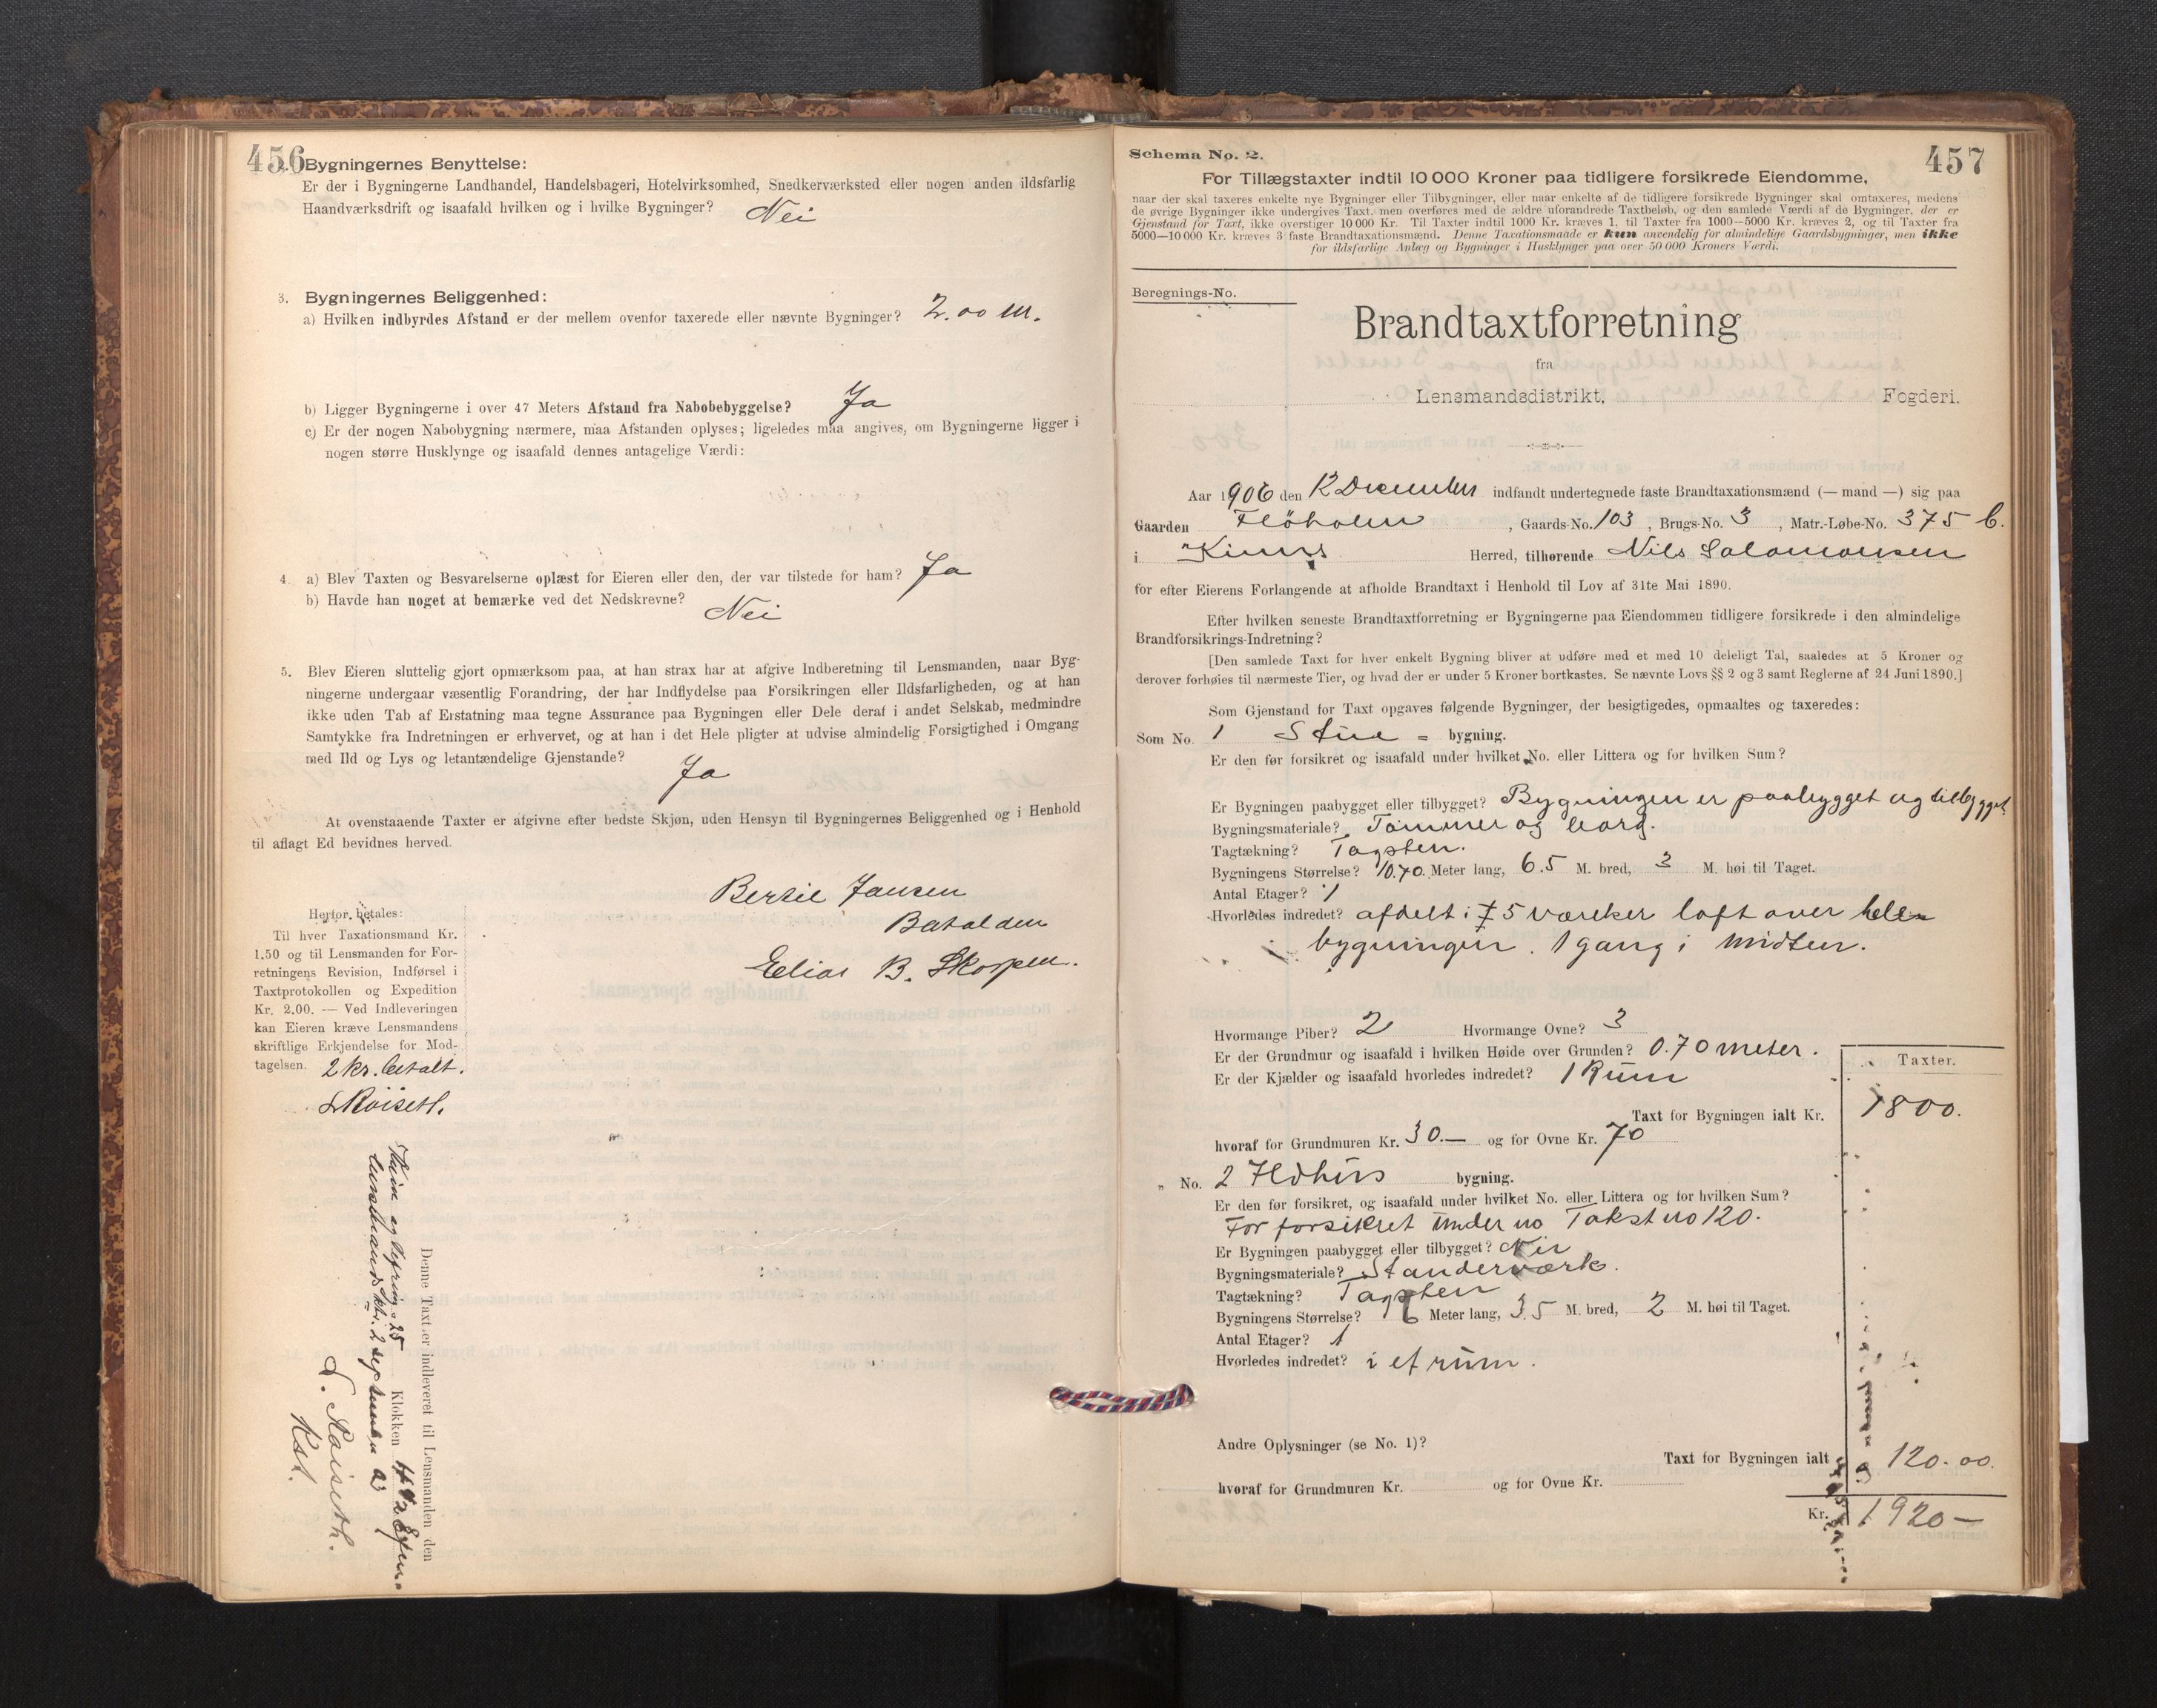 456
Bygningernes Benyttelse:
Er der i Bygningerne Landhandel, Handelsbageri, Hotelvirksomhed, Snedkerværksted eller nogen anden ildsfarlig
Haandværksdrift og isaafald hvilken og i hvilke Bygninger? Nei
3. Bygningernes Beliggenhed:
a) Hvilken indbyrdes Afstand er der mellem ovenfor taxerede eller nævnte Bygninger? 2.00 m.
b) Ligger Bygningerne i over 47 Meters Afstand fra Nabobebyggelse? Ja
c) Er der nogen Nabobygning nærmere, maa Afstanden oplyses; ligeledes maa angives, om Bygningerne ligger i
nogen større Husklynge og isaafald dennes antagelige Værdi:
4. a) Blev Taxten og Besvarelserne oplæst for Eieren eller den, der var tilstede for ham? Ja
b) Havde han noget at bemærke ved det Nedskrevne? Nei
5. Blev Eieren sluttelig gjort opmærksom paa, at han strax har at afgive Indberetning til Lensmanden, naar Byg-
ningerne undergaar væsentlig Forandring, der har Indflydelse paa Forsikringen eller Ildsfarligheden, og at han
ikke uden Tab af Erstatning maa tegne Assurance paa Bygningen eller Dele deraf i andet Selskab, medmindre
Samtykke fra Indretningen er erhvervet, og at han i det Hele pligter at udvise almindelig Forsigtighed i Omgang
med Ild og Lys og letantændelige Gjenstande? Ja
At ovenstaaende Taxter er afgivne efter bedste Skjøn, uden Hensyn til Bygningernes Beliggenhed og i Henhold
til aflagt Ed bevidnes herved.
Bertil Jansen
Batalden
Elias B. Skorpen.
Herfor betales:
Til hver Taxationsmand Kr.
1.50 og til Lensmanden for For-
retningens Revision, Indførsel i
Taxtprotokollen og Expedition
Kr. 2.00. — Ved Indleveringen
kan Eieren kræve Lensmandens
skriftlige Erkjendelse for Mod-
tagelsen. 2 kr. betalt.
Denne Taxt er indleveret til Lensmanden den
Klokken
Kst.
Schema No. 2.
457
For Tillægstaxter indtil 10 000 Kroner paa tidligere forsikrede Eiendomme,
naar der skal taxeres enkelte nye Bygninger eller Tilbygninger, eller naar enkelte af de tidligere forsikrede Bygninger skal omtaxeres, medens
de øvrige Bygninger ikke undergives Taxt, men overføres med de ældre uforandrede Taxtbeløb, og den samlede Værdi af de Bygninger, der er
Gjenstand for Taxt, ikke overstiger 10 000 Kr. Til Taxter indtil 1000 Kr. kræves 1, til Taxter fra 1000—5000 Kr. kræves 2, og til Taxter fra
5000—10 000 Kr. kræves 3 faste Brandtaxationsmænd. Denne Taxationsmaade er kun anvendelig for almindelige Gaardsbygninger, men ikke
for ildsfarlige Anlæg og Bygninger i Husklynger paa over 50 000 Kroners Værdi.
Beregnings-No.
Brandtaxtforretning
fra
Lensmandsdistrikt, Fogderi.
Aar 1906 den 12 December indfandt undertegnede faste Brandtaxationsmænd (— mand —) sig paa
Gaarden Flöholm, Gaards-No. 103, Brugs-No. 3, Matr.-Løbe-No. 375 b.
i Kinns Herred, tilhørende Nils Salamonsen
for efter Eierens Forlangende at afholde Brandtaxt i Henhold til Lov af 31te Mai 1890.
Efter hvilken seneste Brandtaxtforretning er Bygningerne paa Eiendommen tidligere forsikrede i den almindelige
Brandforsikrings-Indretning?
[Den samlede Taxt for hver enkelt Bygning bliver at udføre med et med 10 deleligt Tal, saaledes at 5 Kroner og
derover forhøies til nærmeste Tier, og hvad der er under 5 Kroner bortkastes. Se nævnte Lovs §§ 2 og 3 samt Reglerne af 24 Juni 1890.]
Som Gjenstand for Taxt opgaves følgende Bygninger, der besigtigedes, opmaaltes og taxeredes:
Som No. 1 Stue - bygning.
Er den før forsikret og isaafald under hvilket No. eller Littera og for hvilken Sum?
Er Bygningen paabygget eller tilbygget? Bygningen er paabygget og tilbygget
Bygningsmateriale? Tømmer og bord.
Tagtækning? Tagsten.
Bygningens Størrelse? 10.70. Meter lang, 6.5 M. bred, 3 M. høi til Taget.
Antal Etager? 1
Hvorledes indredet? afdelt i 5 værelser loft over hele
bygningen. 1 gang i midten.
Hvormange Piber? 2 Hvormange Ovne? 3
Er der Grundmur og isaafald i hvilken Høide over Grunden? 0.70 meter.
Er der Kjælder og isaafald hvorledes indredet? 1 Rum
Taxter.
Taxt for Bygningen ialt Kr. 1800.
hvoraf for Grundmuren Kr. 30.— og for Ovne Kr. 70
" No. 2 Ildhus bygning.
Er den før forsikret, og isaafald under hvilket No. eller Littera og for hvilken Sum?
For forsikret under no Takst no 120.
Er Bygningen paabygget eller tilbygget? Nei
Bygningsmateriale? Standerværk.
Tagtækning? Tagsten
Bygningens Størrelse? 6 Meter lang, 3.5 M. bred, 2 M. høi til Taget.
Antal Etager? 1
Hvorledes indredet? i et rum.
Andre Oplysninger (se No. 1)?
Taxt for Bygningen ialt 120.00.
hvoraf for Grundmuren Kr. og for Ovne Kr.
Kr. 1920 —